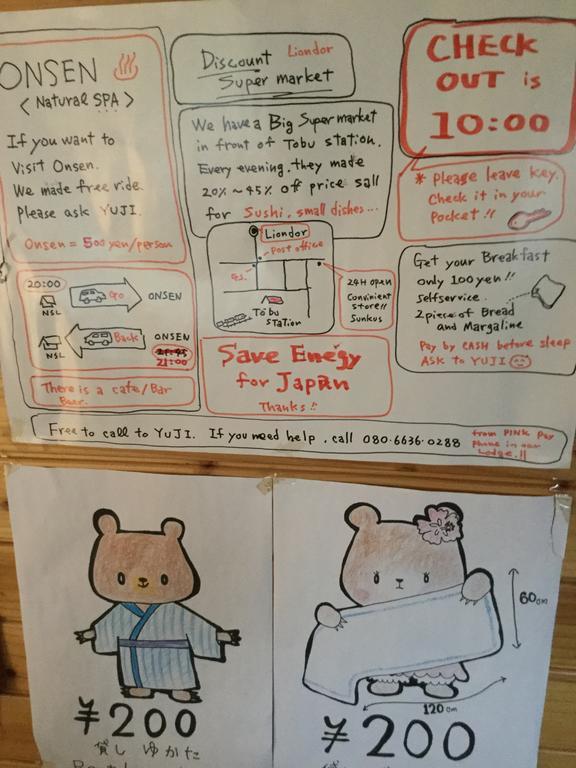 ONSEN
< Natural SPA >
If you want to
Visit Onsen.
We made free ride.
Please ask YUJI.
Onsen = 500 yen/person
20:00
NSL
Go
ONSEN
NSL
Back
ONSEN
21:45
21:00
There is a cafe/Bar
Beer.
Discount Liondor
Super market
We have a Big Super market
in front of Tobu station.
Every evening. they made
20% ~ 45% of price sall
for Sushi, small dishes...
Liondor
Post office
Tobu
Station
24H open
Convinient
store!!
Sunkus
Save Enegy
for Japan
Thanks!!
CHECK
OUT is
10:00
* Please leave key.
Check it in your
Pocket!!
Get your Breakfast
only 100 yen!!
Selfservice.
2 piece of Bread
and Margaline
Pay by CASH before sleep
Ask to YUJI
Free to call to YUJI. If you need help, call 080-6636-0288
from PINK Pay
Phone in our
Lodge.!!
¥200
貸し ゆかた
60cm
120cm
¥200